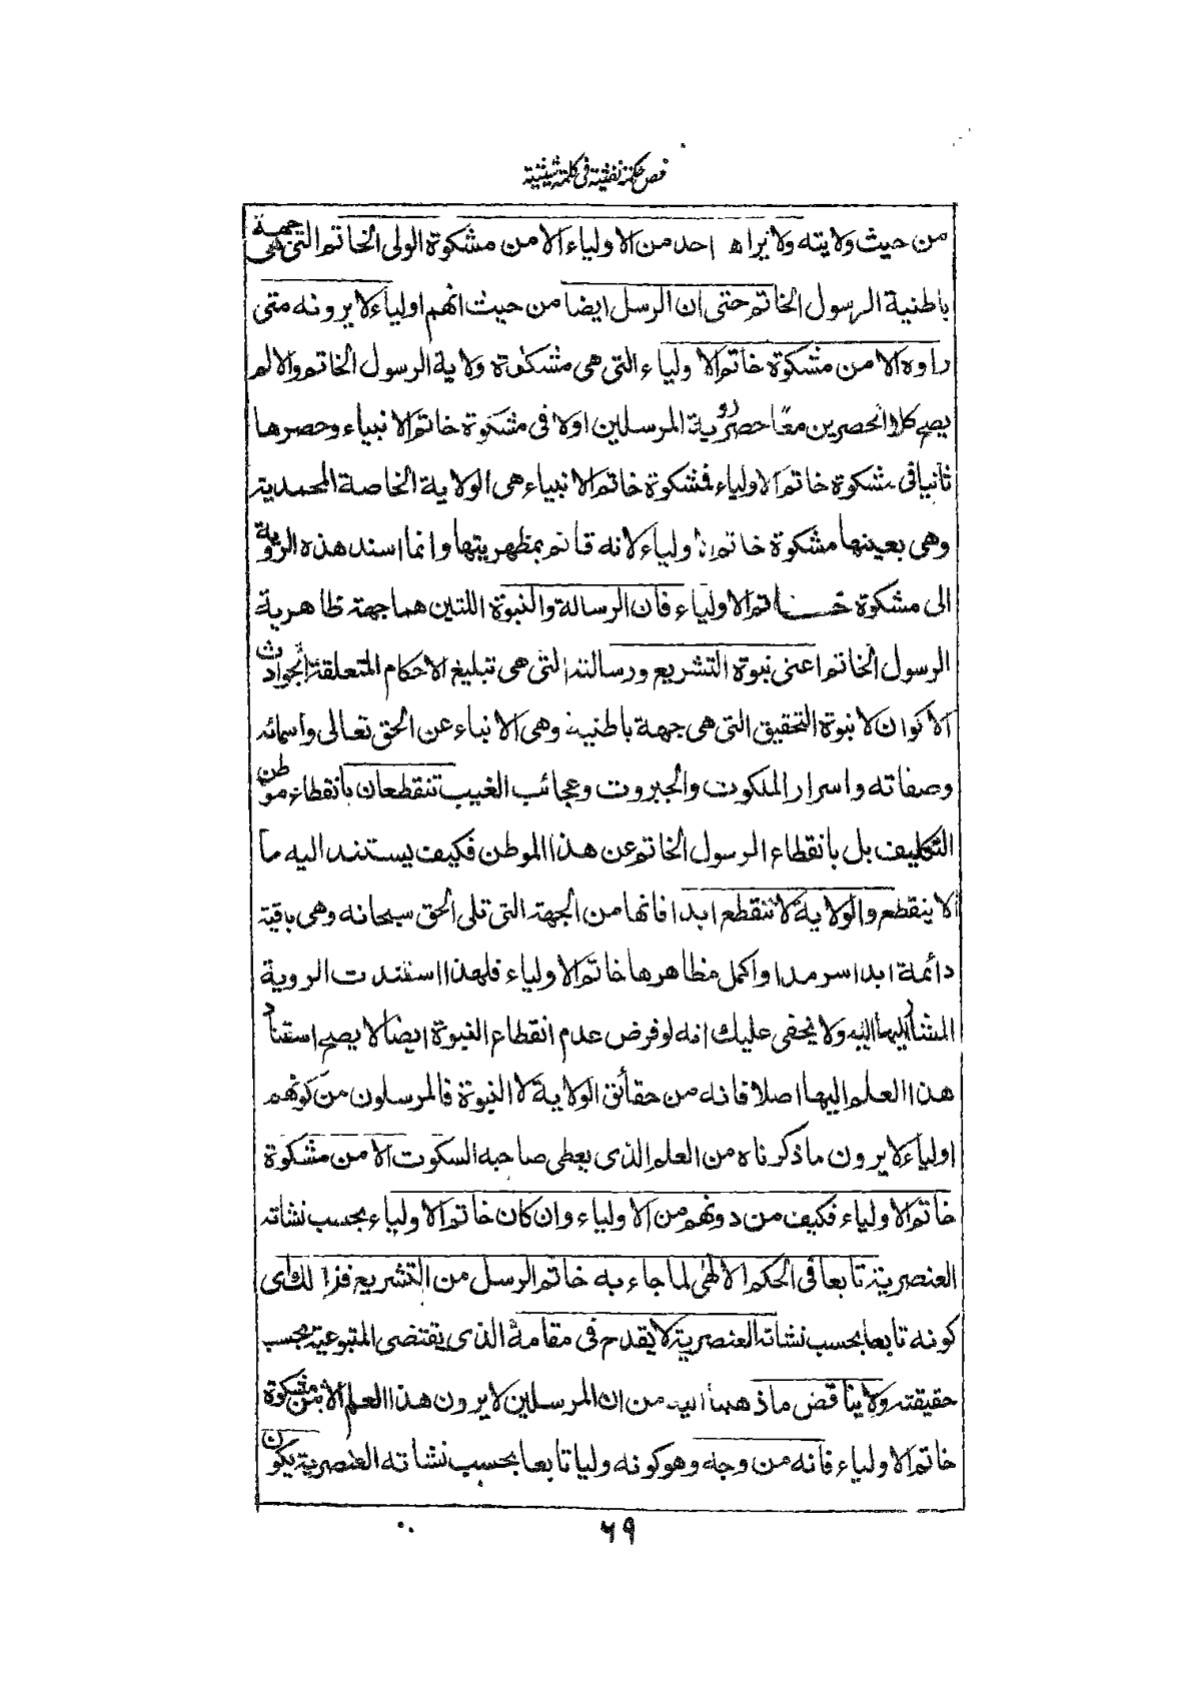 فص حكمة نفثية فى كلمة شيثية
من حيث ولايته ولا يراه احد من الاولياء الا من مشكوة الولى الخاتم التى هى جهة
باطنية الرسول الخاتم حتى ان الرسل ايضا من حيث انهم اولياء لا يرونه متى
راوه الا من مشكوة خاتم الاولياء التى هى مشكوة ولاية الرسول الخاتم والا لم
يصح كلا الحصرين معًا حصر رؤية المرسلين اولا فى مشكوة خاتم الانبياء وحصرها
ثانيا فى مشكوة خاتم الاولياء فمشكوة خاتم الانبياء هى الولاية الخاصة المحمدية
وهى بعينها مشكوة خاتم الاولياء لانه قائم بمظهريتها وانما اسند هذه الروية
الى مشكوة خاتم الاولياء فان الرسالة والنبوة اللتين هما جهة ظاهرية
الرسول الخاتم اعنى نبوة التشريع ورسالته التى هى تبليغ الاحكام المتعلقة بحوادث
الاكوان لا نبوة التحقيق التى هى جهة باطنية وهى الانباء عن الحق تعالى واسمائه
وصفاته واسرار الملكوت والجبروت وعجائب الغيب تنقطعان بانقطاع موطن
التكليف بل بانقطاع الرسول الخاتم عن هذا الموطن فكيف يستند اليه ما
لا ينقطع والولاية لا تنقطع ابدا فانها من الجهة التى تلى الحق سبحانه وهى باقية
دائمة ابدا سرمدا واكمل مظاهرها خاتم الاولياء فلهذا استندت الروية
المشار اليها اليه ولا يخفى عليك انه لو فرض عدم انقطاع النبوة ايضا لا يصح استناد
هذا العلم اليها اصلا فانه من حقائق الولاية لا النبوة فالمرسلون من كونهم
اولياء لا يرون ما ذكرناه من العلم الذى يعطى صاحبه السكوت الا من مشكوة
خاتم الاولياء فكيف من دونهم من الاولياء وان كان خاتم الاولياء بحسب نشاته
العنصرية تابعا فى الحكم الالهى لما جاء به خاتم الرسل من التشريع فذالك اى
كونه تابعا بحسب نشاته العنصرية لا يقدح فى مقامه الذى يقتضى المتبوعية بحسب
حقيقته ولا يناقض ما ذهبنا اليه من ان المرسلين لا يرون هذا العلم الا من مشكوة
خاتم الاولياء فانه من وجه وهو كونه وليا تابعا بحسب نشاته العنصرية يكون
٦٩